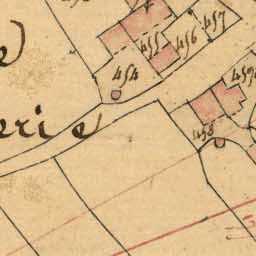 457
456
455
454
458
e
erie